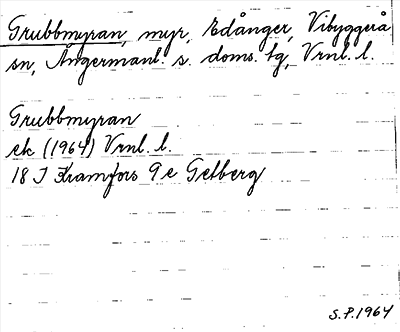 Grubbmyran, myr, Edånger, Vibyggerå
sn, Ångermanl. s. doms. tg, Vrnl. l.
Grubbmyran
ek (1964) Vrnl. l.
18 I Kramfors 9 e Getberg
S.P. 1964